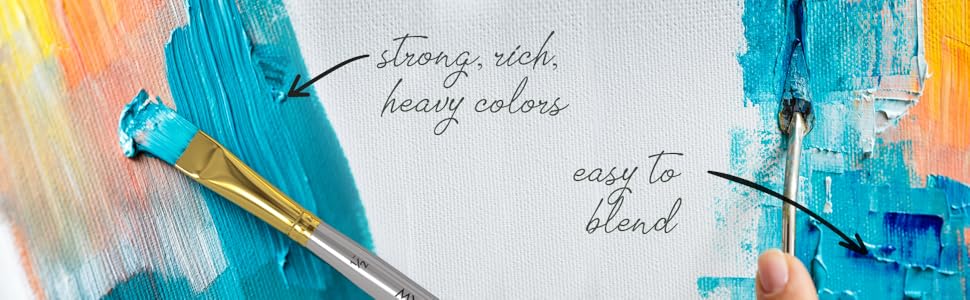 strong, rich,
heavy colors
easy to
blend